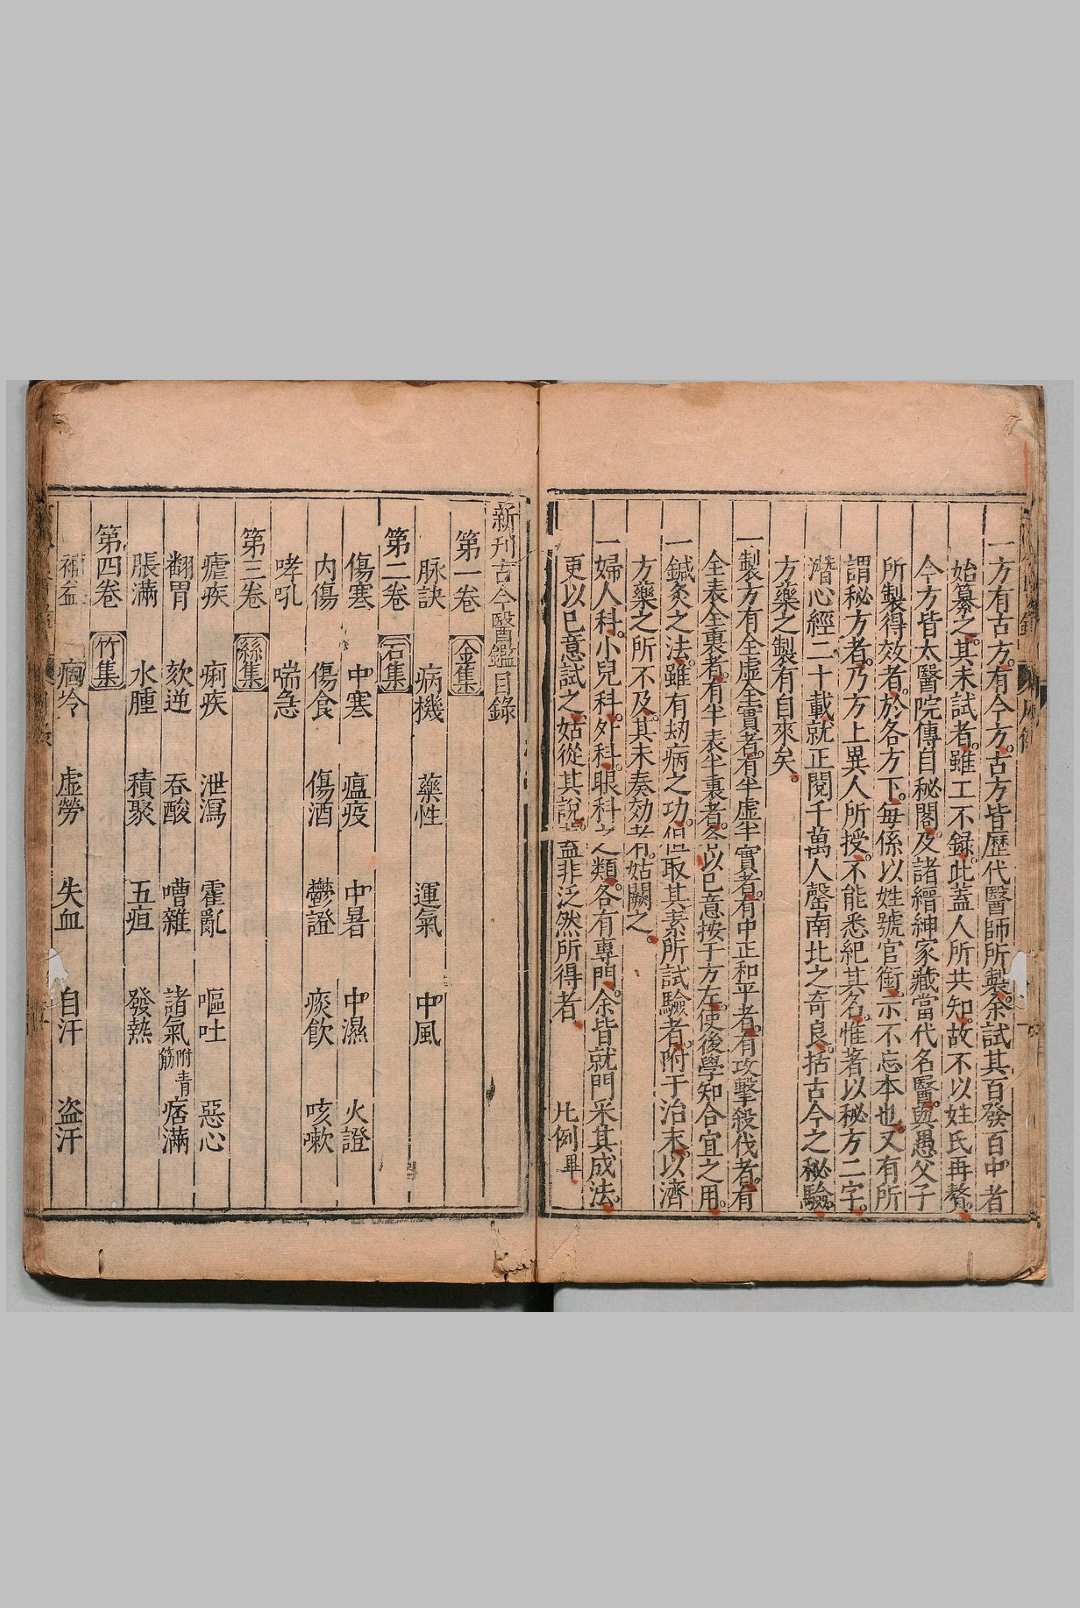 一方有古方有今方古方皆歷代醫師所製余試其百發百中者
始纂之其未試者雖工不録此蓋人所共知故不以姓氏再贅
今方皆太醫院傳自秘閣及諸縉紳家藏當代名醫與愚父子
所製得效者於各方下毎係以姓號官銜示不忘本也又有所
謂秘方者乃方上異人所授不能悉紀其名惟著以秘方二字
潛心經二十載就正閱千萬人罄南北之奇良括古今之秘驗
方藥之製有自來矣
一製方有全虛全實者有半虛半實者有中正和平者有攻擊殺伐者有
全表全裏者有半表半裏者各以已意按于方左使後學知合宜之用
一鍼灸之法雖有刼病之功但取其素所試驗者附于治末以濟
方藥之所不及其未奏効者姑闕之
一婦人科小兒科外科眼科之類各有專門余皆就門采其成法
更以已意試之姑從其說蓋非泛然所得者 凡例畢
新刊古今醫鑑目錄
第一卷 金集
脉訣 病機 藥性 運氣 中風
第二卷 石集
傷寒 中寒 瘟疫 中暑 中濕 火證
内傷 傷食 傷酒 鬱證 痰飲 咳嗽
哮吼 喘急
第三卷 絲集
瘧疾 痢疾 泄瀉 霍亂 嘔吐 惡心
翻胃 欬逆 吞酸 嘈雜 諸氣附青筋 痞滿
脹滿 水腫 積聚 五疸 發熱
第四卷 竹集
補益 痼冷 虛勞 失血 自汗 盜汗